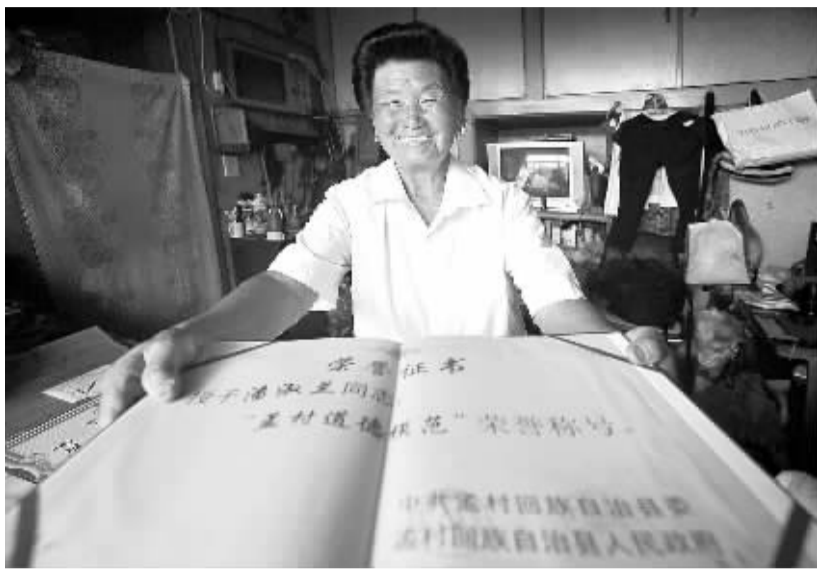 荣誉证书
授予潘淑兰同志
“孟村道德模范”荣誉称号。
中共孟村回族自治县委
孟村回族自治县人民政府